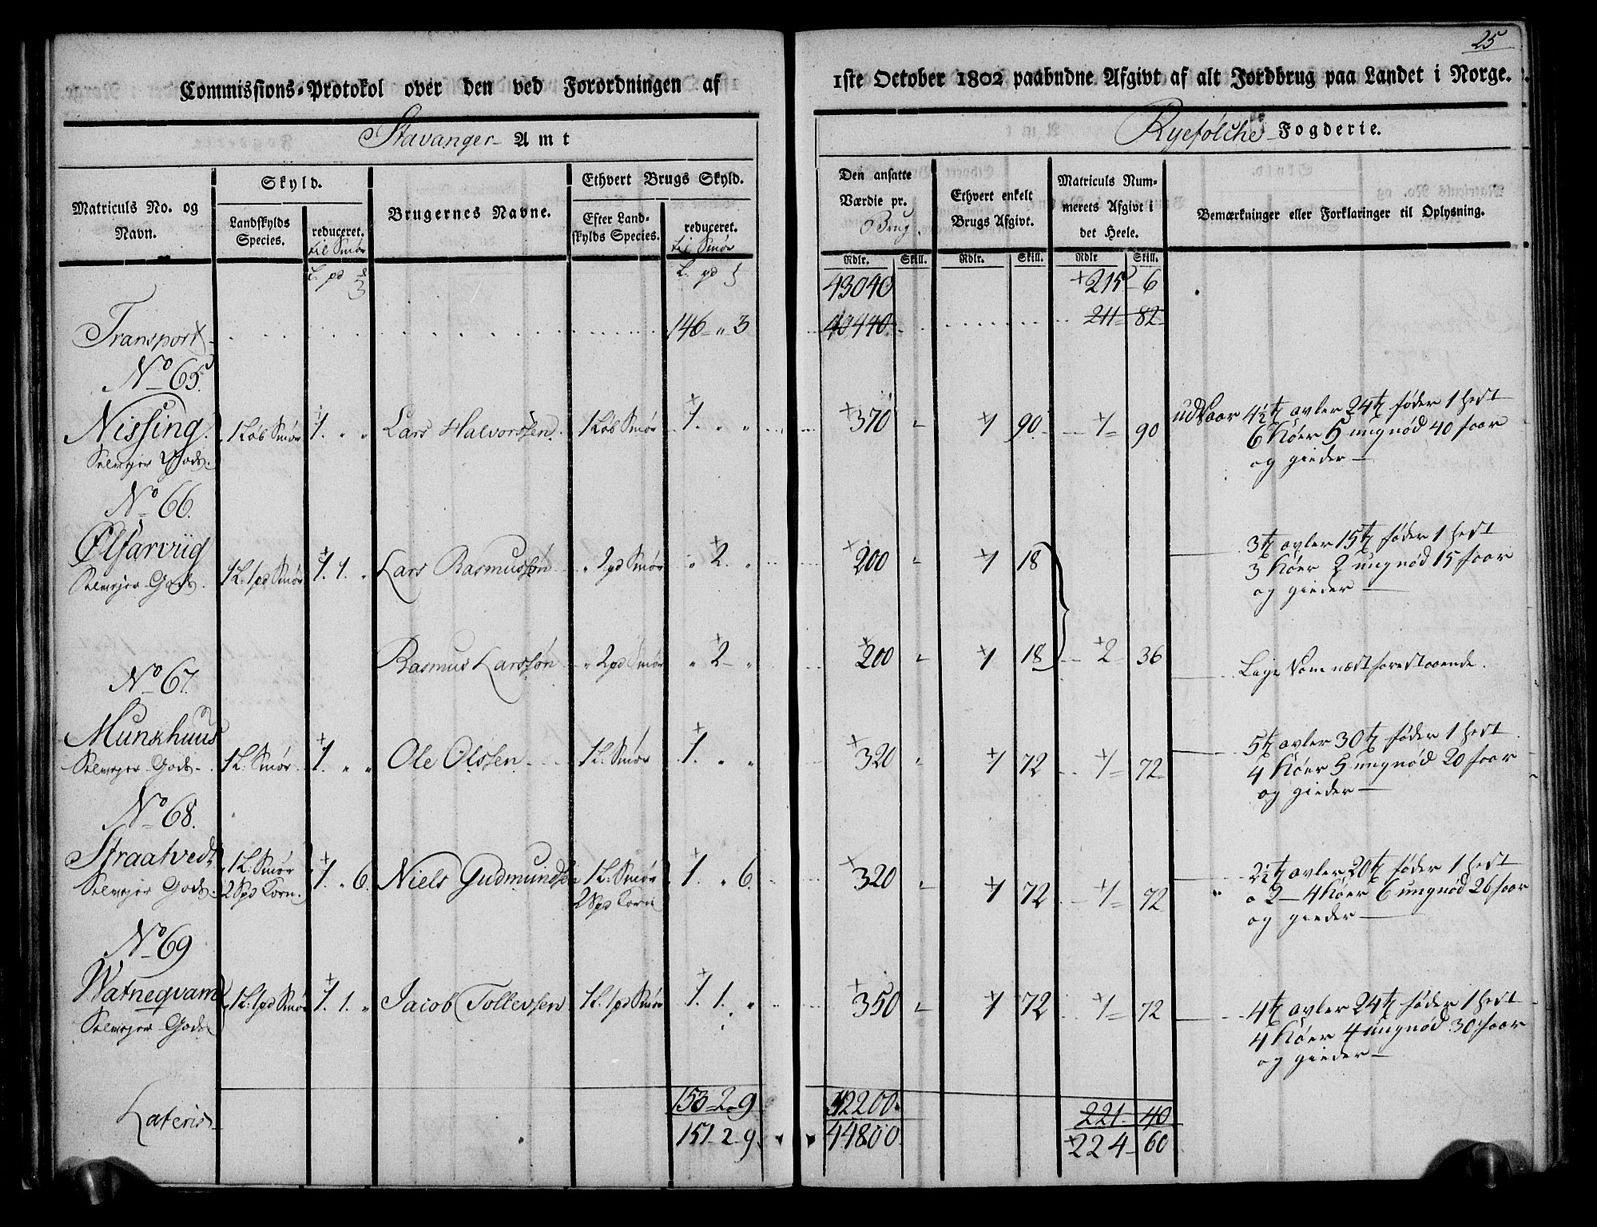 25
Commissions-Protokol over den ved Forordningen af 1ste October 1802 paabudne Afgivt af alt Jordbrug paa Landet i Norge.
Stavanger Amt
Ryefølche Fogderie.
Matriculs No. og Navn.
Skyld.
Landskylds Species.
reduceret. til Smør
Brugernes Navne.
Ethvert Brugs Skyld.
Efter Landskylds Species.
reduceret. til Smør
Den ansatte Værdie pr. Brug.
Ethvert enkelt Brugs Afgivt.
Matriculs Nummerets Afgivt i det Heele.
Bemærkninger eller Forklaringer til Oplysning.
Rdlr. Skill. Rdlr. Skill. Rdlr Skill.
L. pd 43040 215 6
Transport 146 " 3 211 82
No 65.
Nissing 1 Løb Smør 1. " " Lars Halvorssen 1 Løb Smør 1. " " 370 " 1 90 1 90 udsaar 4½ t avler 24 t føder 1 hest
Gods. 6 Køer 5 ungnød 40 faar
og gieder
No 66.
Ølfarviig 1 L. 1 pd Smør 1. 1. " Lars Rasmussøn " 2 pd Smør " 2. " 200 " 1 18 3 t avler 15 t føder 1 hest
Gods. 3 Køer 2 ungnød 15 faar
og gieder
Rasmus Larssøn " 2 pd Smør " 2 " 200 " 1 18 2 36 Lige som næst forestaaende.
No 67.
Munkhuus 1 L. Smør 1. " " Ole Olssen 1 L. Smør 1. " " 320 " 1 72 1 72 5 t avler 30 t føder 1 hest
Gods. 4 Køer 5 ungnød 20 faar
og gieder
No 68.
Straatvedt 1 L. Smør 1. " 6 Niels Gudmundsen 1 L. Smør 1. " 6. 320 " 1 72 1 72 2½ t avler 20 t føder 1 hest
Gods. 2 Spd Korn 2 Spd Korn a 2 - 4 Køer 6 ungnød 26 faar
og gieder
No 69
Watneqvam 1 L. 1 pd Smør 1. 1. " Jacob Tollevsen 1 L. 1 pd Smør 1. 1. " 350 " 1 72 1 72 4 t avler 24 t føder 1 hest
Gods 4 Køer 4 ungnød 30 faar
og gieder
Lateris 153 2 9 221 40
151 2 9 44800 224 60